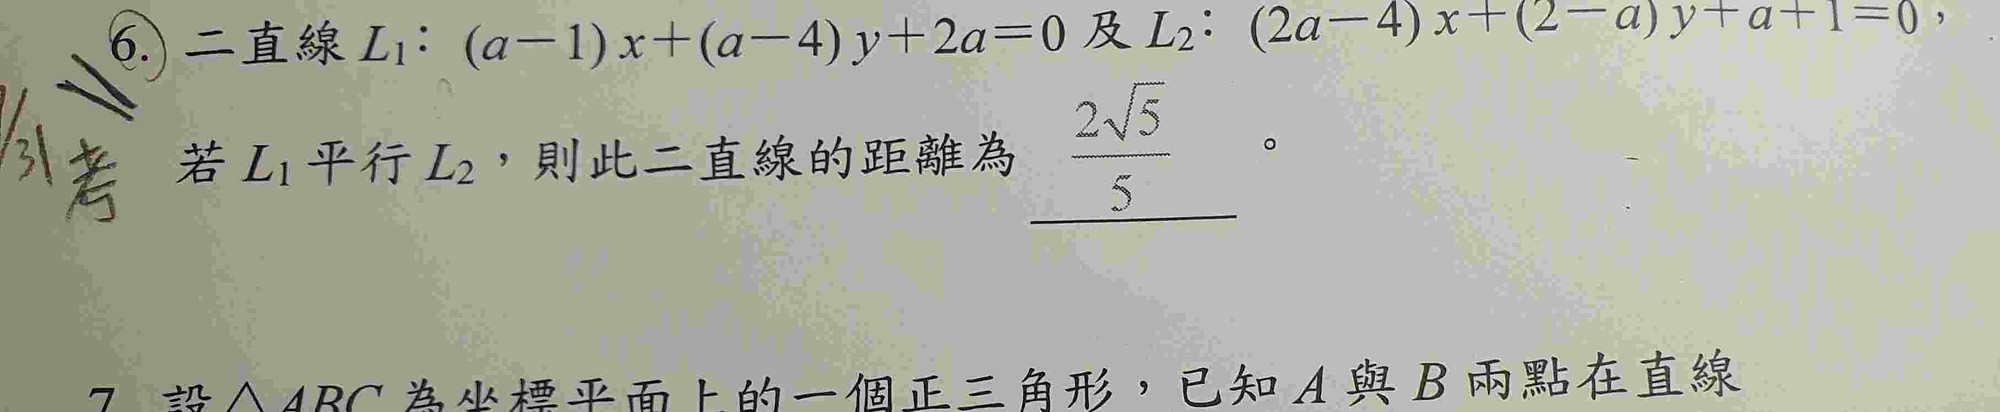 6. 二直線 L₁：(a－1)x＋(a－4)y＋2a＝0 及 L₂：(2a－4)x＋(2－a)y＋a＋1＝0，
1/31 考
若 L₁ 平行 L₂，則此二直線的距離為 2√5/5 。
7. 設△ABC 為坐標平面上的一個正三角形，已知 A 與 B 兩點在直線